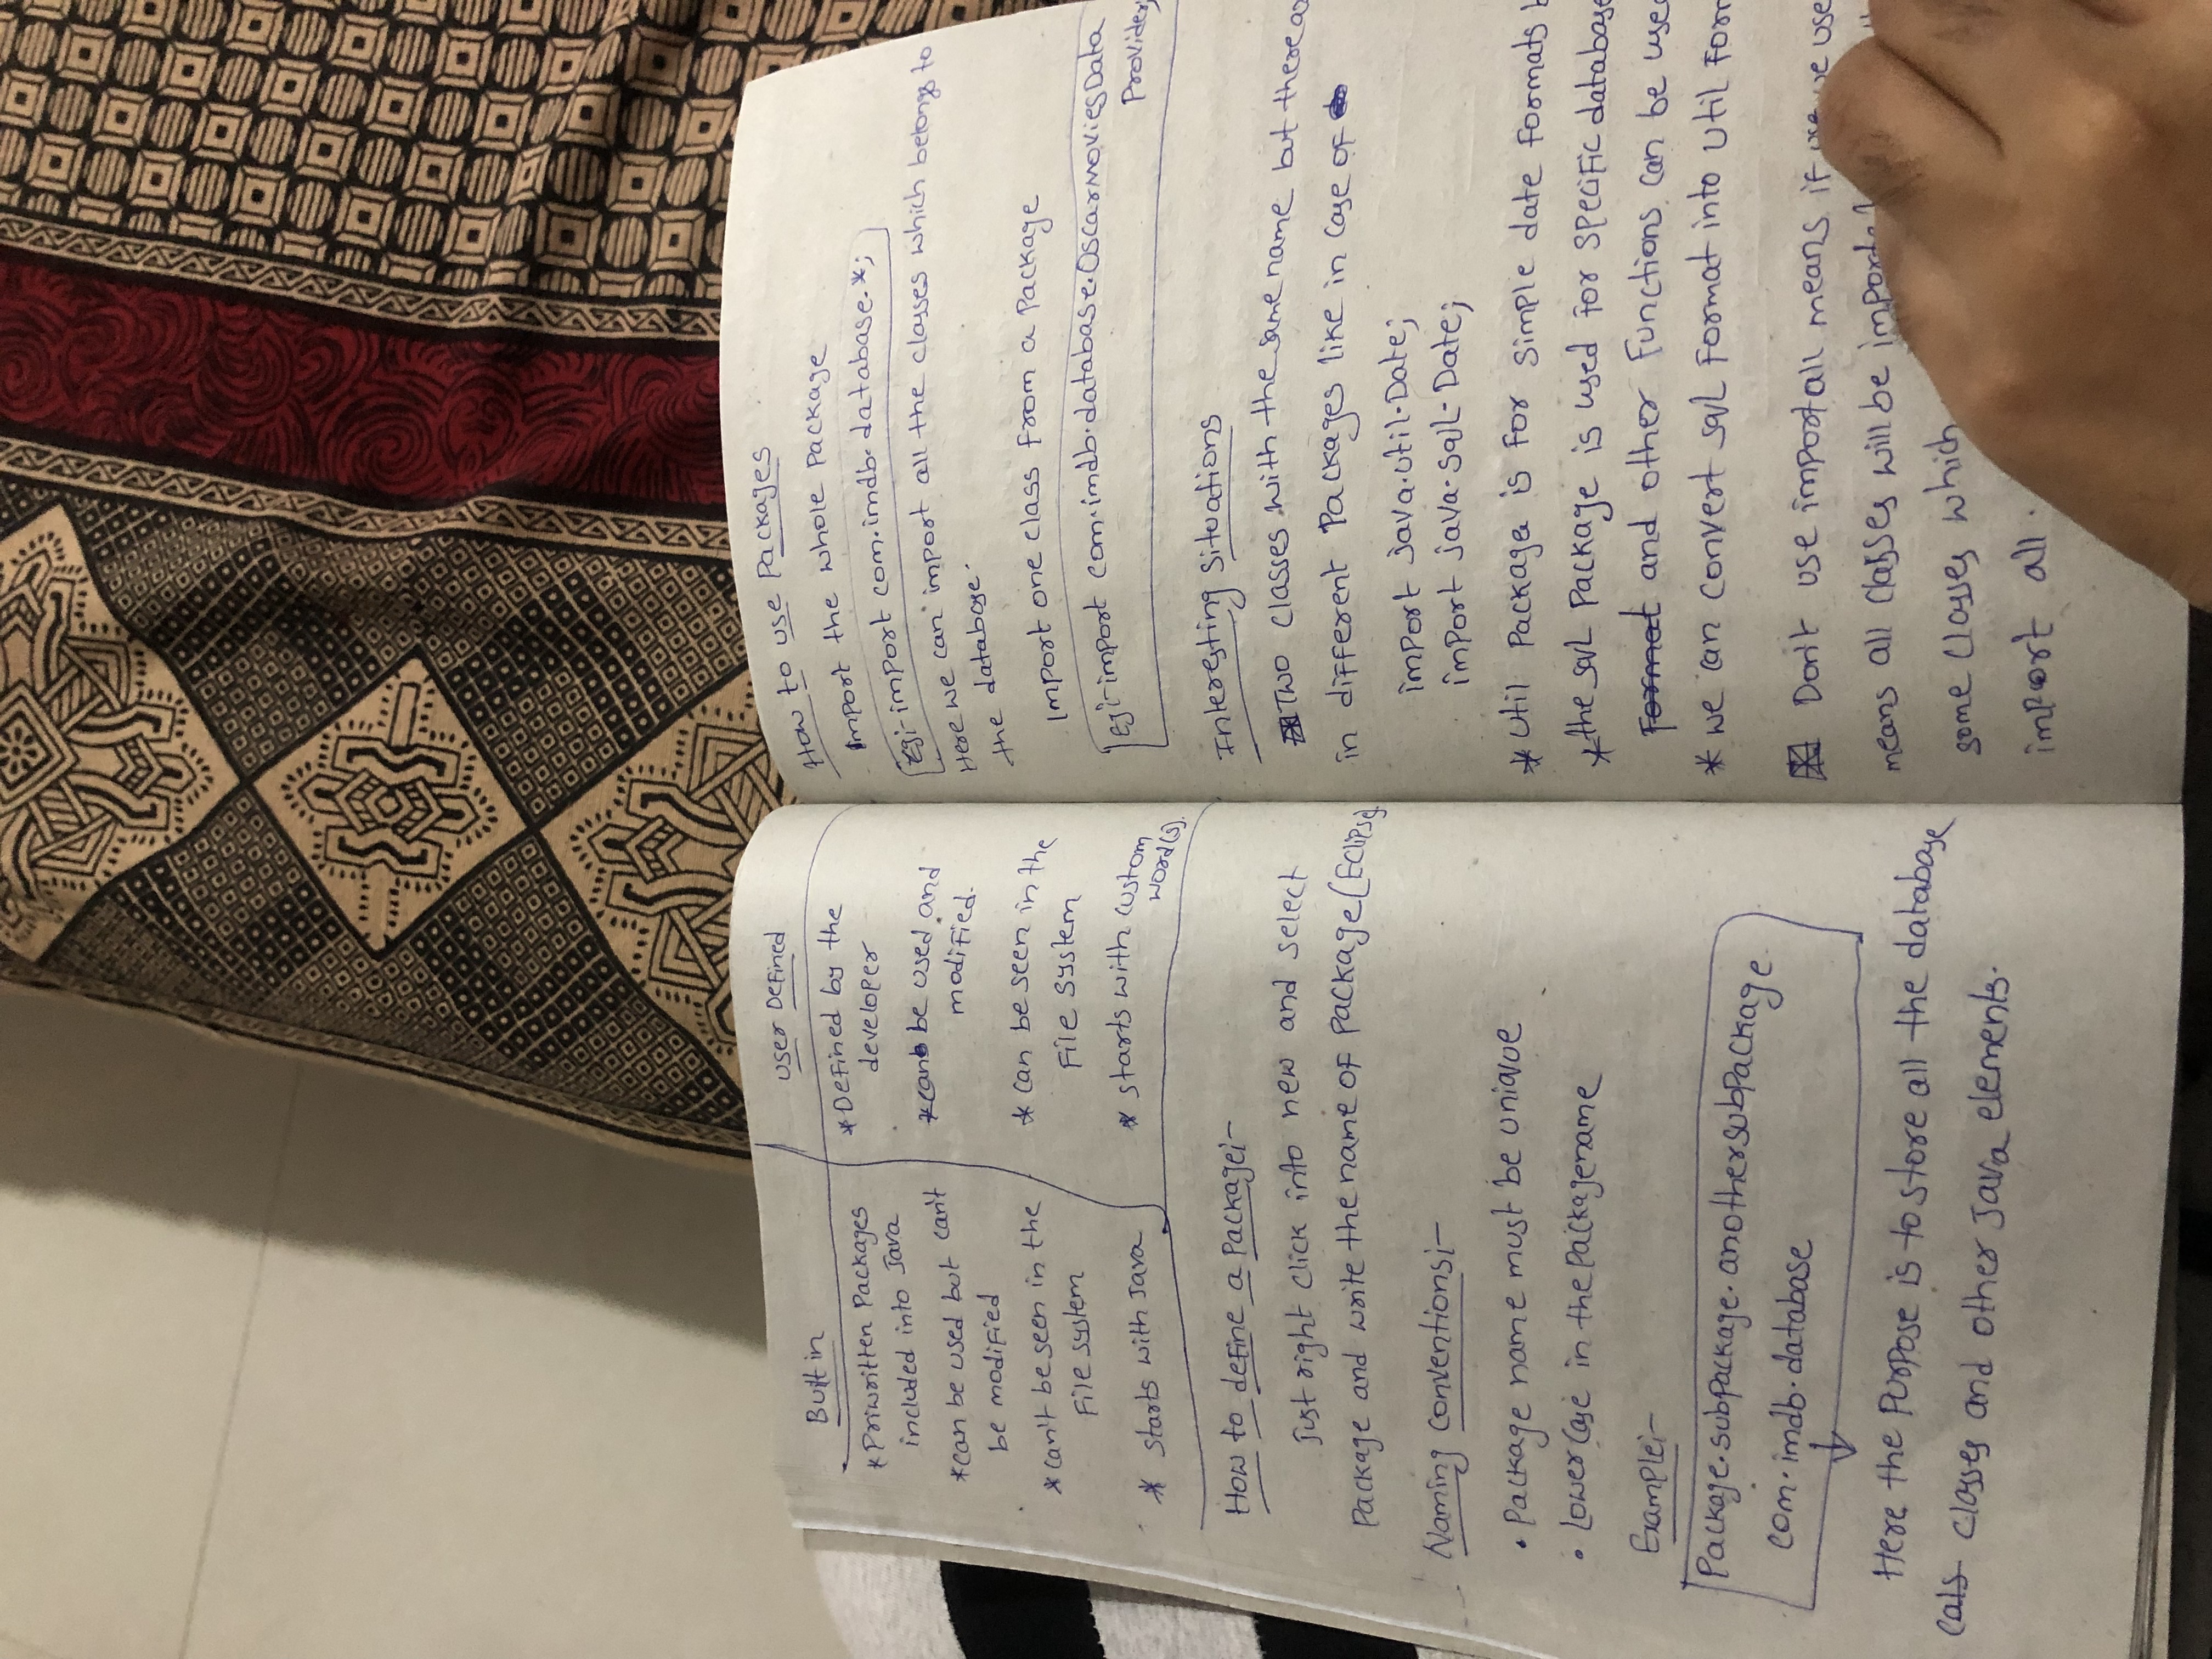 Built in
*Priwritten Packages
included into Java
*can be used but can't
be modified
*can't be seen in the
File system
* starts with Java
User Defined
*Defined by the
developer
*can be used and
modified.
* can be seen in the
File System
* starts with custom
word(s).
How to define a Package:-
just right click into new and select
Package and write the name of Package(Eclipse)
Naming conventions:-
• Package name must be unique
• Lowercase in the Packagename
Example:-
Package.subpackage.anothersubPackage
com.imdb.database
Here the Purpose is to store all the database
cals classes and other Java elements.
How to use Packages
Import the whole Package
Eg:-import com.imdb.database.*;
Here we can import all the classes which belongs to
the database.
Import one class from a Package
Eg:-import com.imdb.database.OscarMoviesData
Provider;
Interesting Situations
Two classes with the same name but there
in different Packages like in case of
import java.util.Date;
import java.sql.Date;
* Util Package is for simple date formats
*the sql Package is used for specific database
format and other functions can be
* we can convert sql format into util
Don't use import all means if we use
means all classes will be
some classes which
import all.